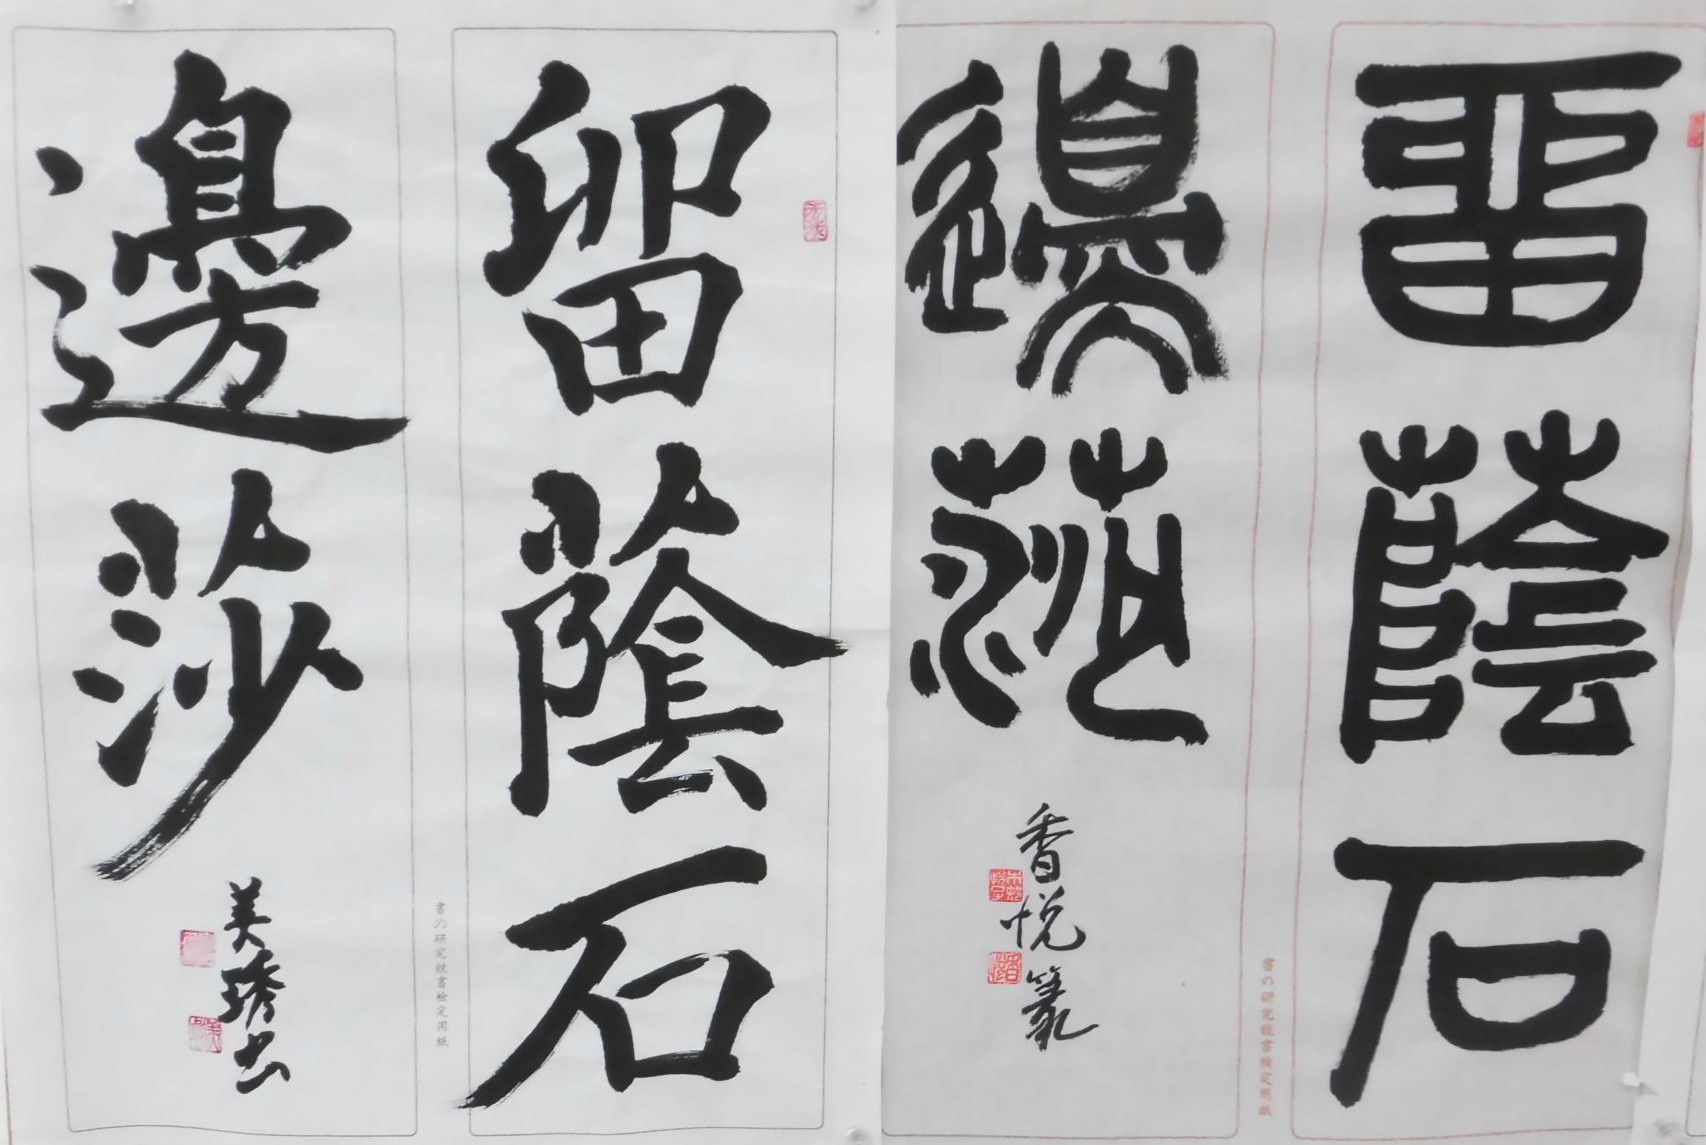 留蔭石
邊莎
香悦篆
書の研究競書検定用紙
留蔭石
邊莎
美琇書
書の研究競書検定用紙